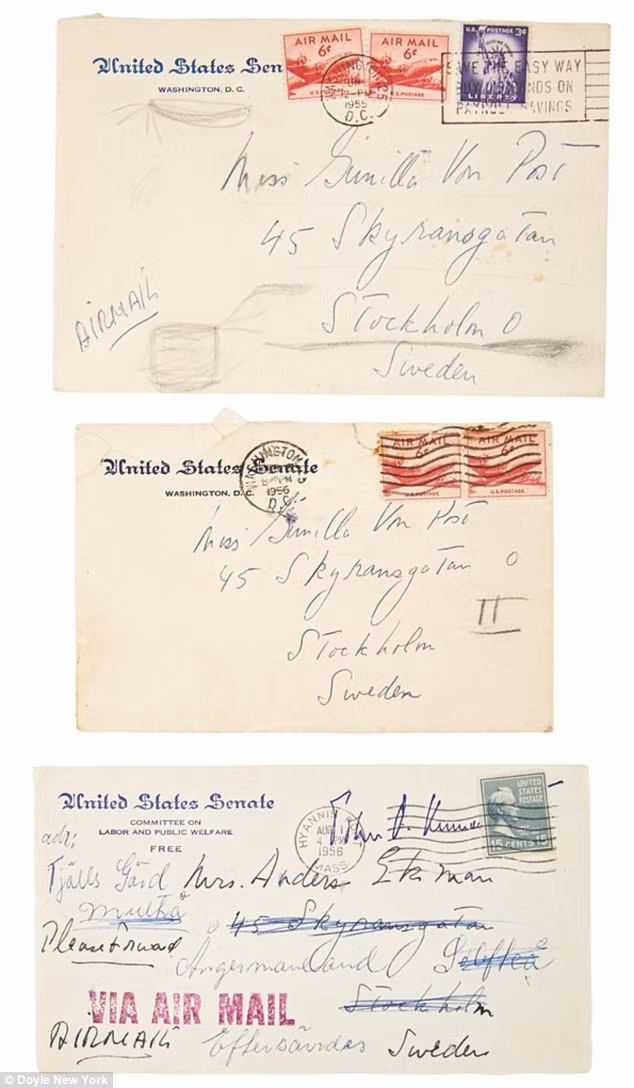 United States Sen
WASHINGTON, D. C.
AIR MAIL
6¢
U.S. POSTAGE
AIR MAIL
6¢
U.S. POSTAGE
U.S. POSTAGE 3¢
LIBERTY
WASHINGTON 25
1955
D.C.
EASY WAY
ON
SAVINGS
Miss Gunilla Von Post
45 Skyransgatan
Stockholm O
Sweden
AIRMAIL
United States Senate
WASHINGTON, D. C.
WASHINGTON
1956
D.C.
AIR MAIL
6¢
U.S. POSTAGE
AIR MAIL
6¢
U.S. POSTAGE
Miss Gunilla Von Post
45 Skyransgatan O
Stockholm
Sweden
II
United States Senate
COMMITTEE ON
LABOR AND PUBLIC WELFARE
FREE
HYANNIS
AUG
4 PM
1956
MASS
UNITED
STATES
POSTAGE
15 CENTS 15
adr:
Tjälls Gård Mrs. Anders Ekman
Multrå 45 Skyransgatan
Please Forward
Angermanland
Stockholm
VIA AIR MAIL
AIRMAIL Eftersändes Sweden
© Doyle New York